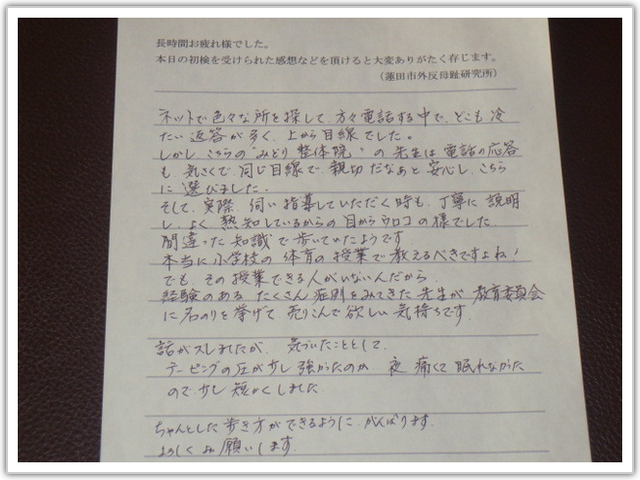 長時間お疲れ様でした。
本日の初検を受けられた感想などを頂けると大変ありがたく存じます。
（蓮田市外反母趾研究所）
ネットで色々な所を探して、方々電話する中で、どこも冷
たい返答が多く、上から目線でした。
しかし、こちらの"みどり整体院"の先生は電話の応答
も気さくで、同じ目線で、親切だなぁと安心し、こちら
に選びました。
そして、実際、伺い指導していただく時も、丁寧に説明
し、よく熟知しているからの目からウロコの様でした。
間違った知識で歩いていたようです。
本当に小学校の体育の授業で教えるべきですよね!
でも、その授業できる人がいないんだから、
経験のあるたくさん症例をみてきた先生が教育委員会
に名のりを挙げて売りこんで欲しい気持ちです。
話がズレましたが、気づいたこととして、
テーピングの圧が少し強かったのか夜痛くて眠れなかった
ので少し短かくしました
ちゃんとした歩き方ができるようにがんばります。
よろしくお願いします。